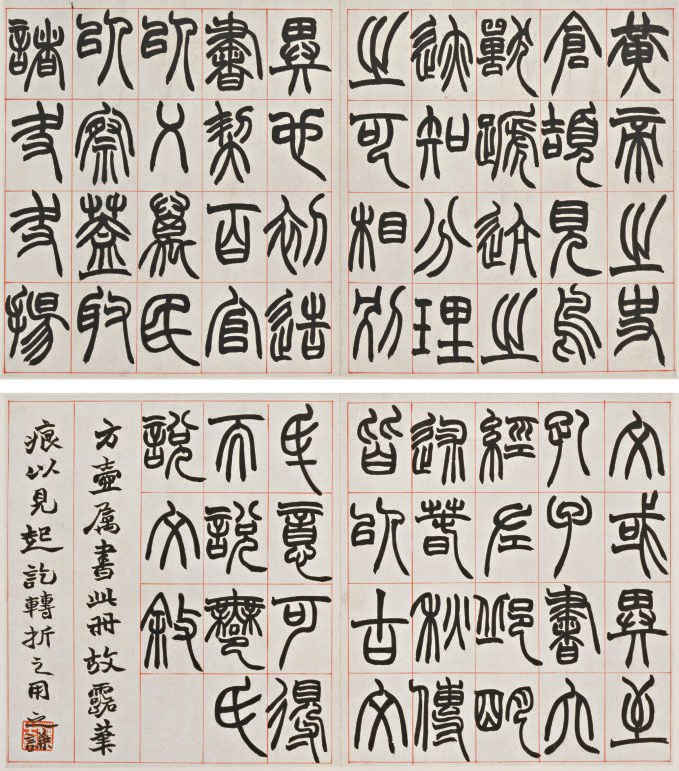 黃帝之史
倉頡見鳥
獸蹏迒之
迹知分理
之可相別
異也初造
書契百官
以乂萬民
以察蓋取
諸夬夬揚
文或異至
孔子書六
經左邱明
述春秋傳
皆以古文
氒意可得
而說鄦氏
說文敘
方壺属書此冊故露筆
痕以見起訖轉折之用之謙